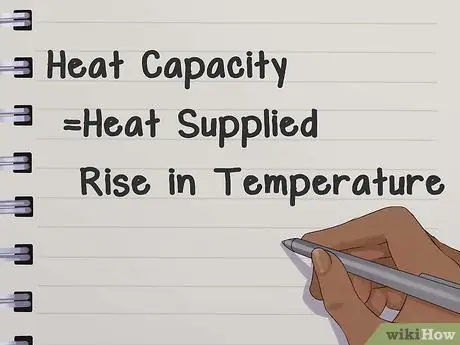 Heat Capacity
=Heat Supplied
Rise in Temperature
wikiHow